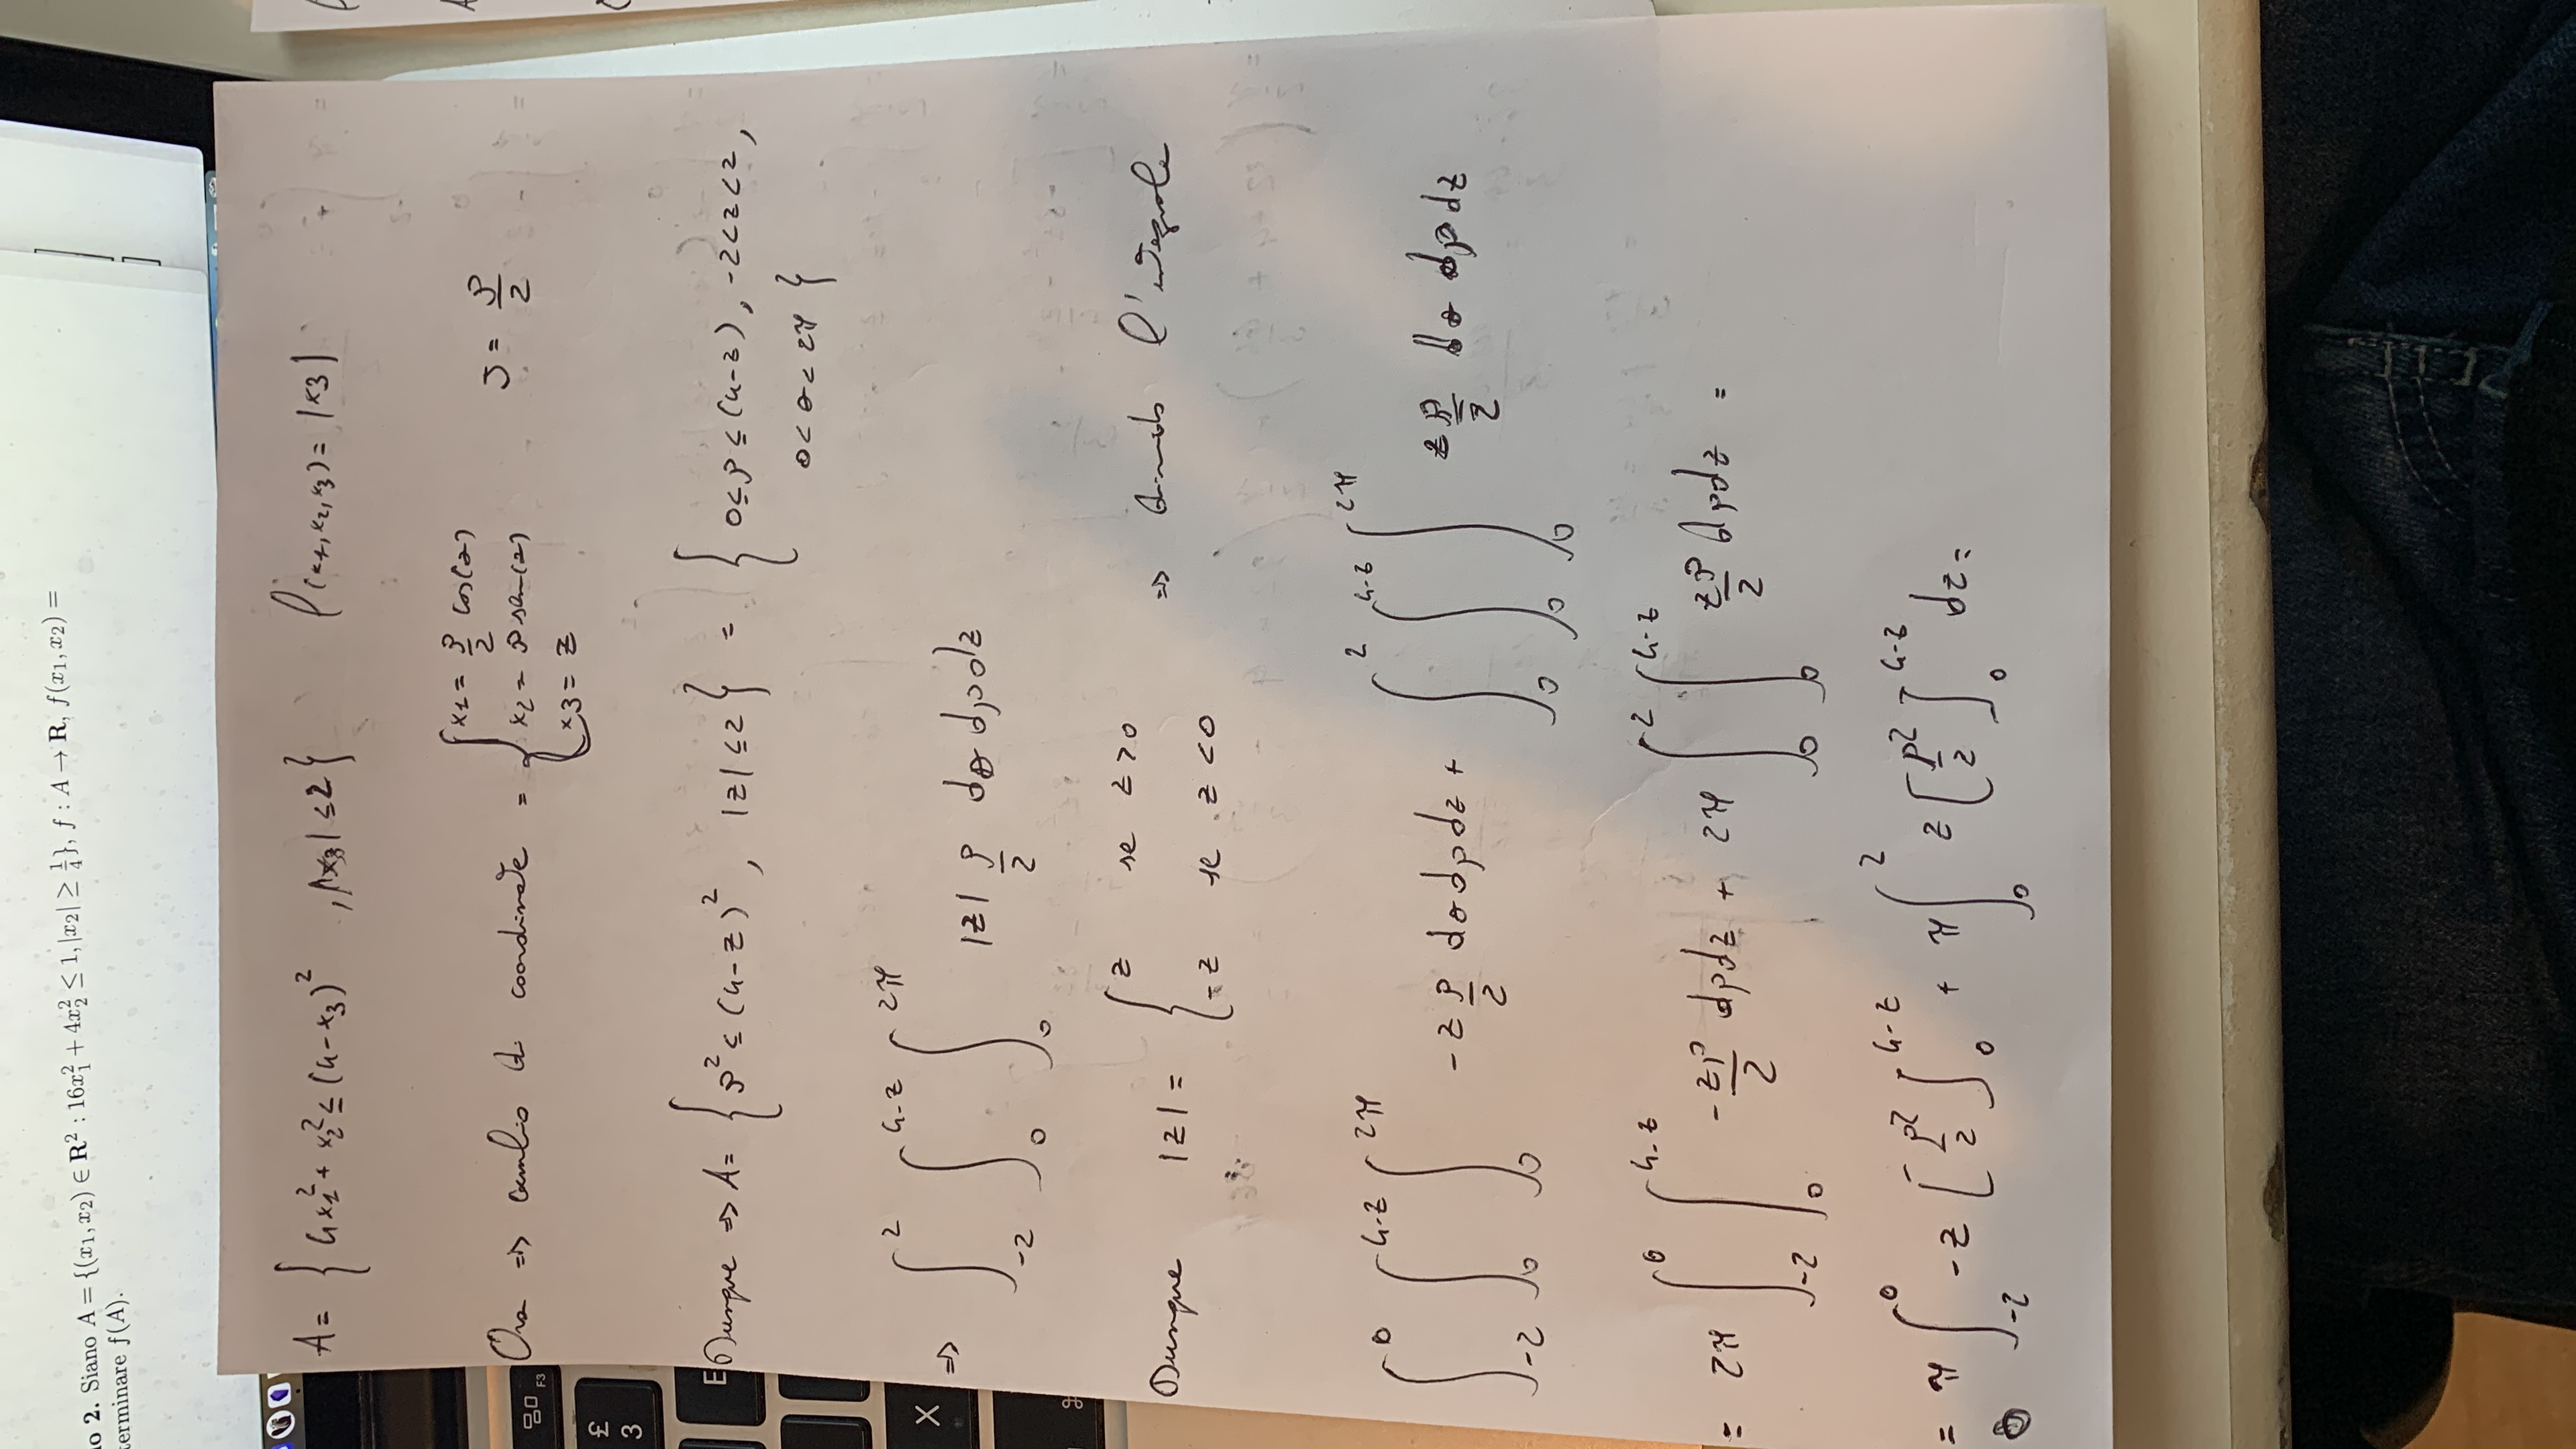 io 2. Siano A = {(x₁, x₂) ∈ R² : 16x₁² + 4x₂² ≤ 1, |x₂| ≥ 1/4}, f : A → R, f(x₁, x₂) =
terminare f(A).
A = { 4x₁² + x₂² ≤ (4-x₃)² , |x₃| ≤ 2 } f(x₁, x₂, x₃) = |x₃|
Ora => cambio di coordinate = { x1 = ρ/2 cos(θ) J = ρ/2
x2 = ρ sen(θ)
x3 = z
Dunque => A = { ρ² ≤ (4-z)², |z| ≤ 2 } = { 0 ≤ ρ ≤ (4-z), -2 < z < 2,
0 < θ < 2π }
=> ∫₋₂² ∫₀^(4-z) ∫₀^(2π) |z| ρ/2 dθ dρ dz
Dunque |z| = { z se z > 0 => divido l'integrale
-z se z < 0
∫₋₂⁰ ∫₀^(4-z) ∫₀^(2π) -z ρ/2 dθ dρ dz + ∫₀² ∫₀^(4-z) ∫₀^(2π) z ρ/2 dθ dρ dz
= 2π ∫₋₂⁰ ∫₀^(4-z) -zρ/2 dρ dz + 2π ∫₀² ∫₀^(4-z) zρ/2 dρ dz =
= π ∫₋₂⁰ -z [ρ²/2]₀^(4-z) + π ∫₀² z [ρ²/2]₀^(4-z) dz =
£
3
F3
E
X
⌘